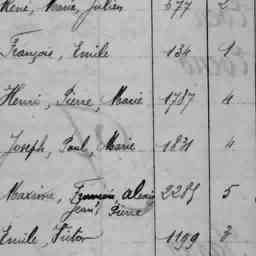 René, Marie, Julien 577 2
François, Emile 134 1
Henri, Pierre, Marie 1787 4
Joseph, Paul, Marie 1831 4
Maxime, François Alexis 2285 5
Jean, Pierre
Emile, Victor 1199 3